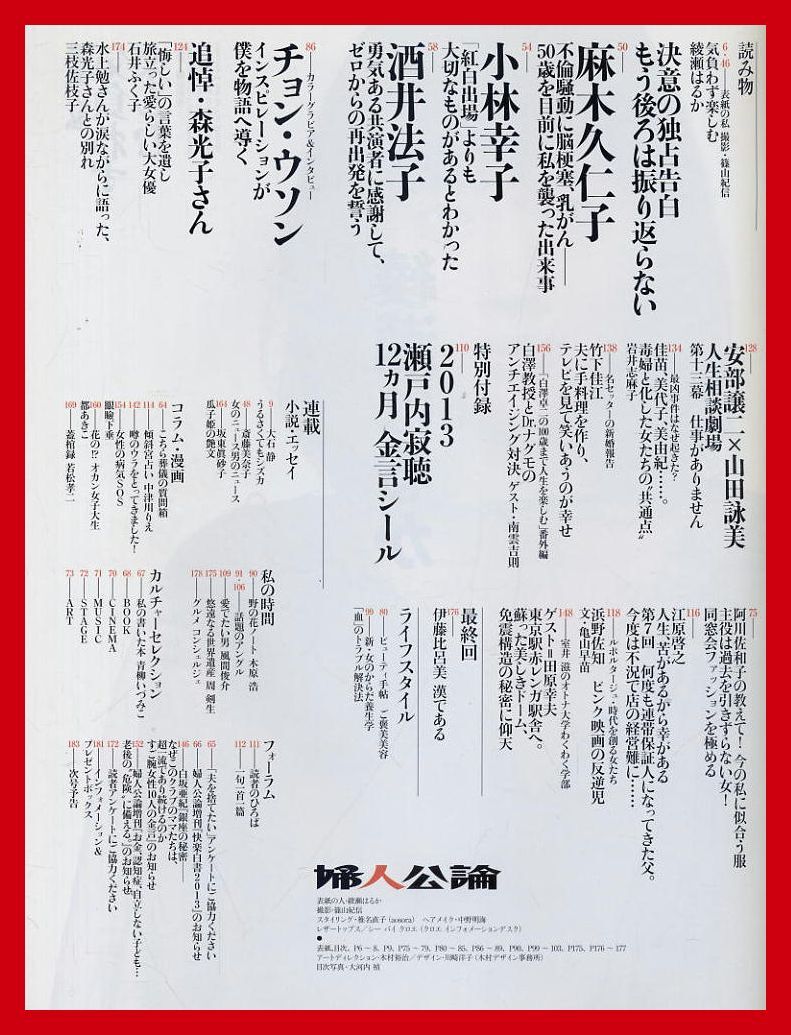 読み物
6・46
表紙の私 撮影・篠山紀信
気負わず楽しむ
綾瀬はるか
決意の独占告白
もう後ろは振り返らない
50
麻木久仁子
不倫騒動に脳梗塞、乳がん――
50歳を目前に私を襲った出来事
54
小林幸子
「紅白出場」よりも
大切なものがあるとわかった
58
酒井法子
勇気ある共演者に感謝して、
ゼロからの再出発を誓う
86
カラーグラビア&インタビュー
チョン・ウソン
インスピレーションが
僕を物語へ導く
追悼・森光子さん
124
「悔しい」の言葉を遺し
旅立った愛らしい大女優
石井ふく子
174
水上勉さんが涙ながらに語った、
森光子さんとの別れ
三枝佐枝子
128
安部譲二×山田詠美
人生相談劇場
第十三幕 仕事がありません
134
最凶事件はなぜ起きた?
佳苗、美代子、美由紀……。
毒婦と化した女たちの“共通点”
岩井志麻子
138
名セッターの新婚報告
竹下佳江
夫に手料理を作り、
テレビを見て笑いあうのが幸せ
156
「白澤卓二の100歳まで人生を楽しむ」番外編
白澤教授とDr.ナグモの
アンチエイジング対決 ゲスト・南雲吉則
特別付録
110
2013
瀬戸内寂聴
12ヵ月 金言シール
連載
小説・エッセイ
9
大石 静
うるさくてもシズカ
48
斎藤美奈子
女のニュース男のニュース
164
坂東眞砂子
瓜子姫の艶文
コラム・漫画
64
こちら葬儀の質問箱
114
傾斜宮占い 中津川りえ
142
噂のウラをとってきました!
154
女性の病気SOS
眼瞼下垂
160
花の!? オカン女子大生
都あきこ
169
蓋棺録 若松孝二
75
阿川佐和子の教えて! 今の私に似合う服
主役は過去を引きずらない女!
同窓会ファッションを極める
116
江原啓之
人生、苦があるから幸がある
第7回 何度も連帯保証人になってきた父。
今度は不況で店の経営難に……
118
ルポルタージュ・時代を創る女たち
浜野佐知 ピンク映画の反逆児
文・亀山早苗
148
室井 滋のオトナ大学わくわく学部
ゲスト=田原幸夫
東京駅赤レンガ駅舎へ。
蘇った美しきドーム、
免震構造の秘密に仰天
最終回
176
伊藤比呂美 漢である
ライフスタイル
80
ビューティ手帖 ご褒美美容
99
新・女のからだ養生学
「血」のトラブル解決法
私の時間
90
野の花ノート 木原 浩
91・106
話題のアングル
109
愛でたい男 風間俊介
175
悠遠なる世界遺産 周 剣生
178
グルメ コンシェルジュ
カルチャーセレクション
67
私の書いた本 青柳いづみこ
68
BOOK
70
CINEMA
71
MUSIC
72
STAGE
73
ART
フォーラム
111
読者のひろば
112
一句一首一篇
65
「夫を捨てたい」アンケートにご協力ください
66
婦人公論増刊『快楽白書2013』のお知らせ
146
白坂亜紀『銀座の秘密
なぜこのクラブのママたちは、
超一流であり続けるのか
すご腕女性10人の金言』のお知らせ
152
婦人公論増刊『お金、認知症、自立しない子ども…
老後の“危険”に備える』のお知らせ
172
読者アンケートにご協力ください
181
インフォメーション&
プレゼントボックス
183
次号予告
婦人公論
表紙の人・綾瀬はるか
撮影・篠山紀信
スタイリング・椎名直子(aosora) ヘアメイク・中野明海
レザートップス/シー バイ クロエ(クロエ インフォメーションデスク)
●
表紙、目次、P6〜8、P9、P75〜79、P80〜85、P86〜89、P90、P99〜103、P175、P176〜177
アートディレクション・木村裕治/デザイン・川崎洋子(木村デザイン事務所)
目次写真・大河内 禎